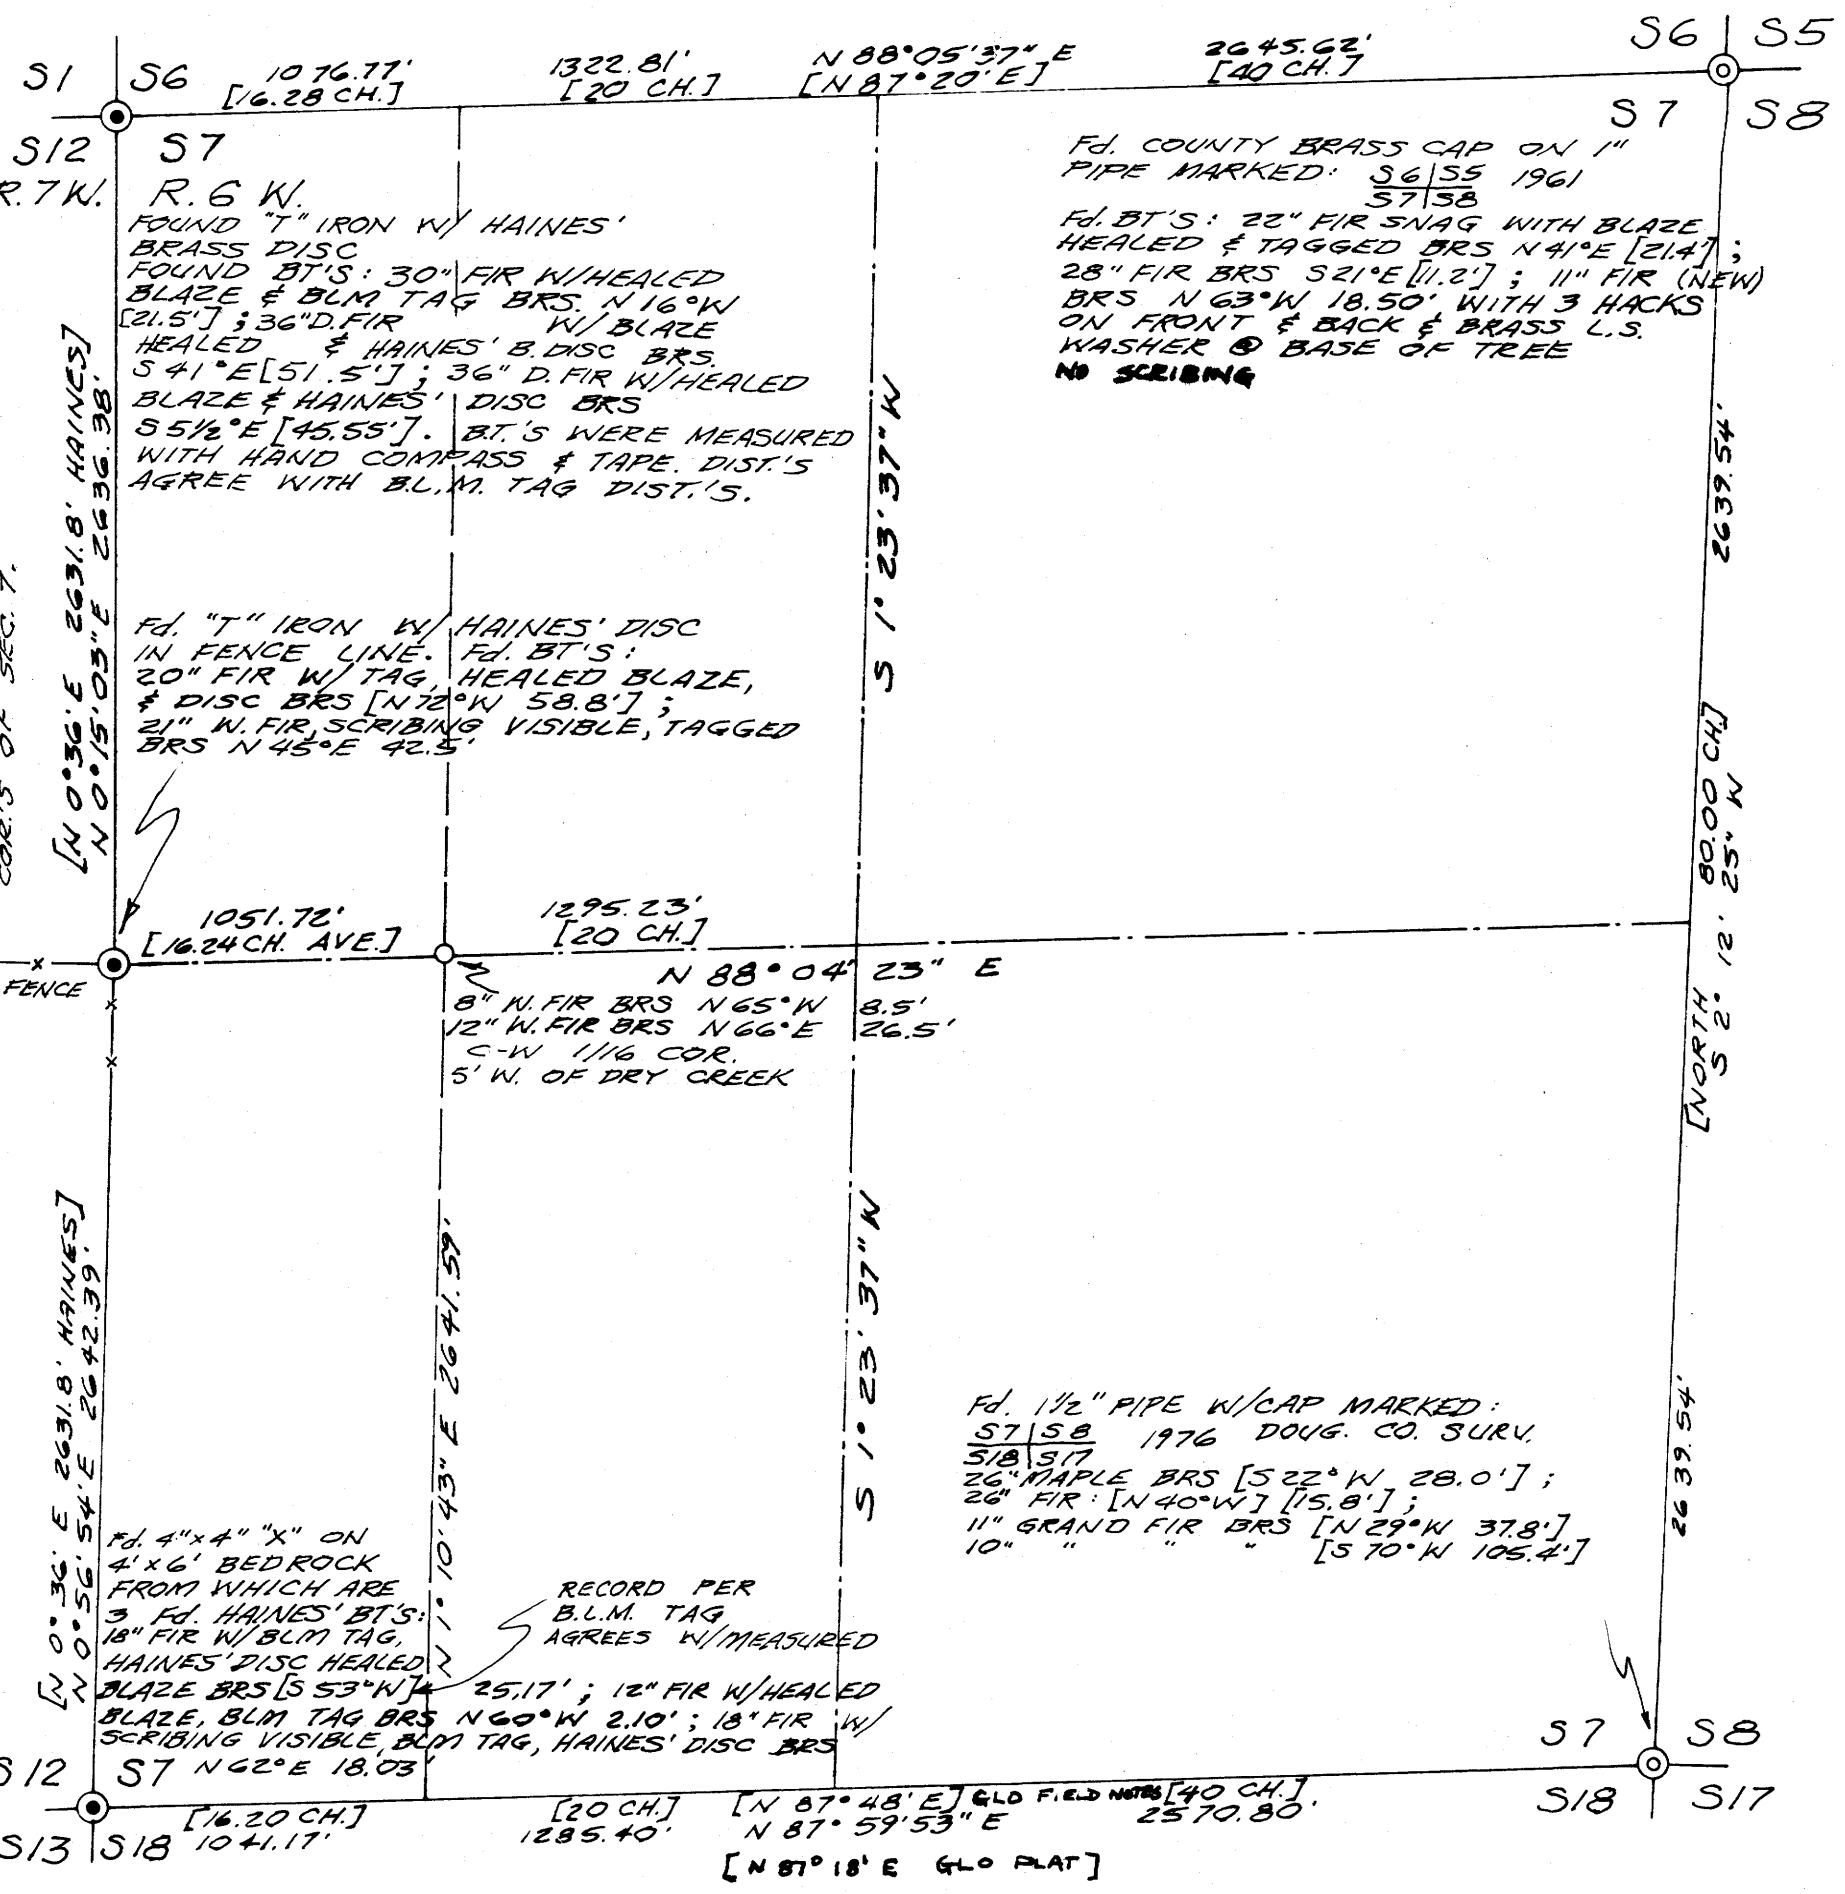 S1
S6
1076.77'
[16.28 CH.]
1322.81'
[20 CH.]
N 88°05'37" E
[N 87°20' E]
2645.62'
[40 CH.]
S6
S5
S12
S7
S7
S8
R.7W.
R.6 W.
FOUND "T" IRON W/ HAINES'
BRASS DISC
FOUND BT'S: 30" FIR W/HEALED
BLAZE & BLM TAG BRS. N 16°W
[21.5']; 36"D.FIR W/ BLAZE
HEALED & HAINES' B.DISC BRS.
S 41°E[51.5']; 36" D.FIR W/HEALED
BLAZE & HAINES' DISC BRS
S 5½°E [45.55']. B.T.'S WERE MEASURED
WITH HAND COMPASS & TAPE. DIST.'S
AGREE WITH B.L.M. TAG DIST.'S.
Fd. COUNTY BRASS CAP ON 1"
PIPE MARKED: S6|S5 1961
S7|S8
Fd. BT'S: 22" FIR SNAG WITH BLAZE
HEALED & TAGGED BRS N 41°E [21.4'];
28" FIR BRS S21°E [11.2']; 11" FIR (NEW)
BRS N 63°W 18.50' WITH 3 HACKS
ON FRONT & BACK & BRASS L.S.
WASHER @ BASE OF TREE
NO SCRIBING
[N 0°36' E 2631.8' HAINES]
N 0°15'03" E 2636.38'
S 1° 23' 37" W
2639.54'
COR.'S OF SEC. 7.
Fd. "T" IRON W/ HAINES' DISC
IN FENCE LINE. Fd. BT'S:
20" FIR W/ TAG, HEALED BLAZE,
& DISC BRS [N 72°W 58.8'];
21" W. FIR, SCRIBING VISIBLE, TAGGED
BRS N 45°E 42.5'
[NORTH 80.00 CH]
S 2° 12' 25" W
1051.72'
[16.24 CH. AVE.]
1295.23'
[20 CH.]
N 88° 04' 23" E
x
FENCE
x
x
8" W. FIR BRS N 65°W 8.5'
12" W. FIR BRS N 66°E 26.5'
C-W 1/16 COR.
5' W. OF DRY CREEK
[N 0°36' E 2631.8' HAINES]
N 0°56'54" E 2642.39'
N 1° 10'43" E 2641.59'
S 1° 23' 37" W
2639.54'
Fd. 1½" PIPE W/CAP MARKED:
S7|S8 1976 DOUG. CO. SURV.
S18|S17
26" MAPLE BRS [S 22° W 28.0'];
26" FIR: [N 40°W] [15.8'];
11" GRAND FIR BRS [N 29°W 37.8']
10" " " " [S 70°W 105.4']
Fd. 4"x4" "X" ON
4' x 6' BEDROCK
FROM WHICH ARE
3 Fd. HAINES' BT'S:
18" FIR W/ BLM TAG,
HAINES' DISC HEALED
BLAZE BRS [S 53°W] 25.17'; 12" FIR W/HEALED
BLAZE, BLM TAG BRS N 60°W 2.10'; 18" FIR W/
SCRIBING VISIBLE, BLM TAG, HAINES' DISC BRS
N 62°E 18.03'
RECORD PER
B.L.M. TAG
AGREES W/MEASURED
S12
S7
S7
S8
S13
S18
[16.20 CH.]
1041.17'
[20 CH.]
1285.40'
[N 87°48' E] GLO FIELD NOTES
N 87° 59'53" E
[N 87° 18' E GLO PLAT]
[40 CH.]
2570.80'
S18
S17